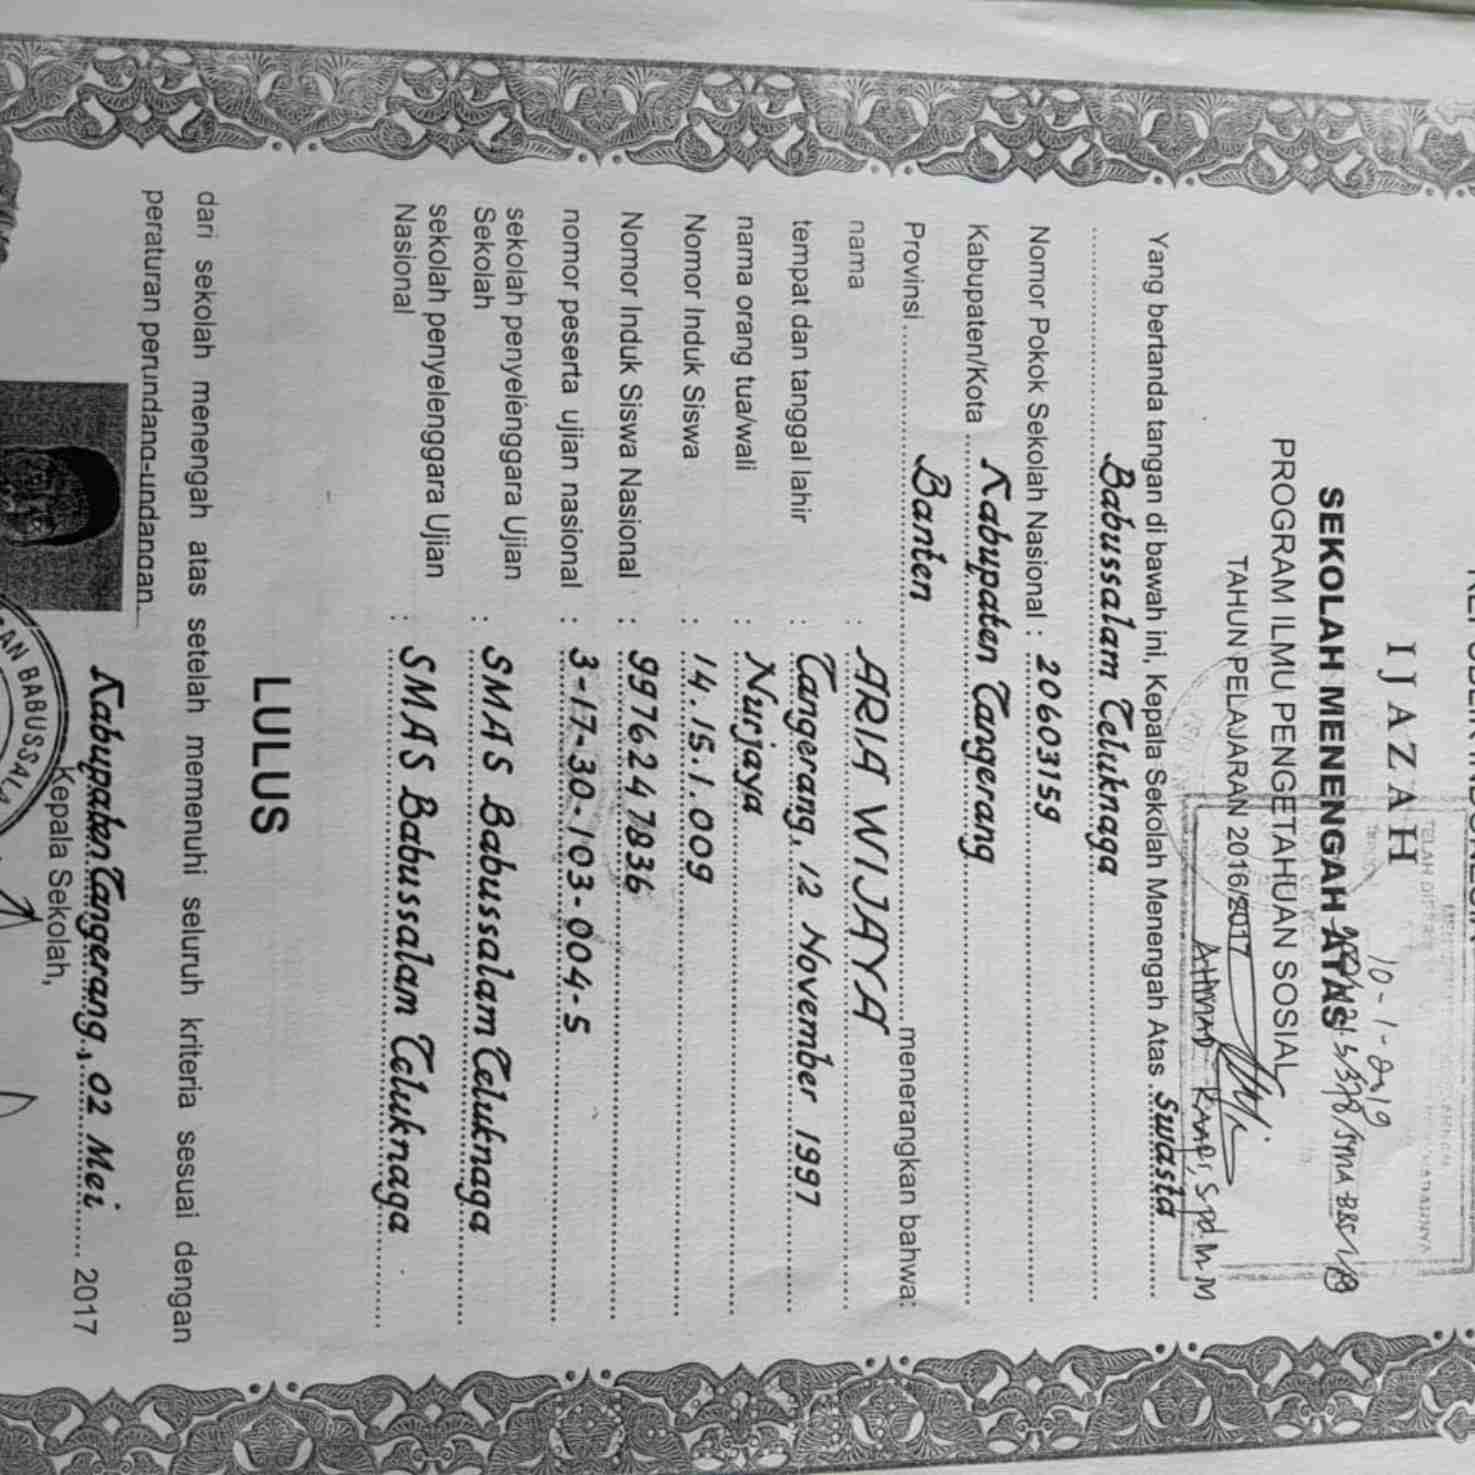 IJAZAH
SEKOLAH MENENGAH ATAS
PROGRAM ILMU PENGETAHUAN SOSIAL
TAHUN PELAJARAN 2016/2017
10-1-2019
AHMAD
Yang bertanda tangan di bawah ini, Kepala Sekolah Menengah Atas Swasta
Babussalam Teluknaga
Nomor Pokok Sekolah Nasional : 20603159
Kabupaten/Kota Kabupaten Tangerang
Provinsi Banten menerangkan bahwa:
nama : ARIA WIJAYA
tempat dan tanggal lahir : Tangerang, 12 November 1997
nama orang tua/wali : Nurjaya
Nomor Induk Siswa : 14.15.1.009
Nomor Induk Siswa Nasional : 9976247836
nomor peserta ujian nasional : 3-17-30-103-004-5
sekolah penyelenggara Ujian : SMAS Babussalam Teluknaga
Sekolah
sekolah penyelenggara Ujian : SMAS Babussalam Teluknaga
Nasional
LULUS
dari sekolah menengah atas setelah memenuhi seluruh kriteria sesuai dengan
peraturan perundang-undangan.
Kabupaten Tangerang, 02 Mei 2017
Kepala Sekolah,
BABUSSALA